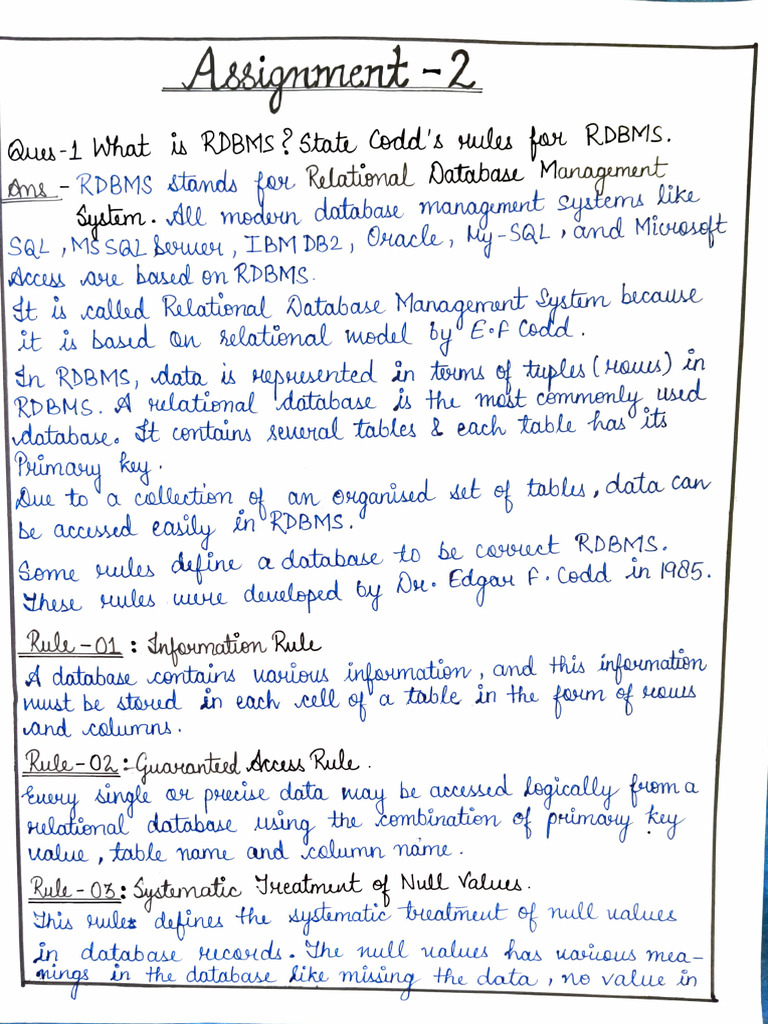 Assignment - 2
Ques-1 What is RDBMS? State Codd's rules for RDBMS.
Ans - RDBMS stands for Relational Database Management
System. All modern database management systems like
SQL, MS SQL Server, IBM DB2, Oracle, My-SQL, and Microsoft
Access are based on RDBMS.
It is called Relational Database Management System because
it is based on relational model by E.F Codd.
In RDBMS, data is represented in terms of tuples (rows) in
RDBMS. A relational database is the most commonly used
database. It contains several tables & each table has its
Primary key.
Due to a collection of an organised set of tables, data can
be accessed easily in RDBMS.
Some rules define a database to be correct RDBMS.
These rules were developed by Dr. Edgar F. Codd in 1985.
Rule-01 : Information Rule
A database contains various information, and this information
must be stored in each cell of a table in the form of rows
and columns.
Rule-02 : Guaranteed Access Rule.
Every single or precise data may be accessed logically from a
relational database using the combination of primary key
value, table name and column name.
Rule-03 : Systematic Treatment of Null Values.
This rules defines the systematic treatment of null values
in database records. The null values has various mea-
nings in the database like missing the data, no value in